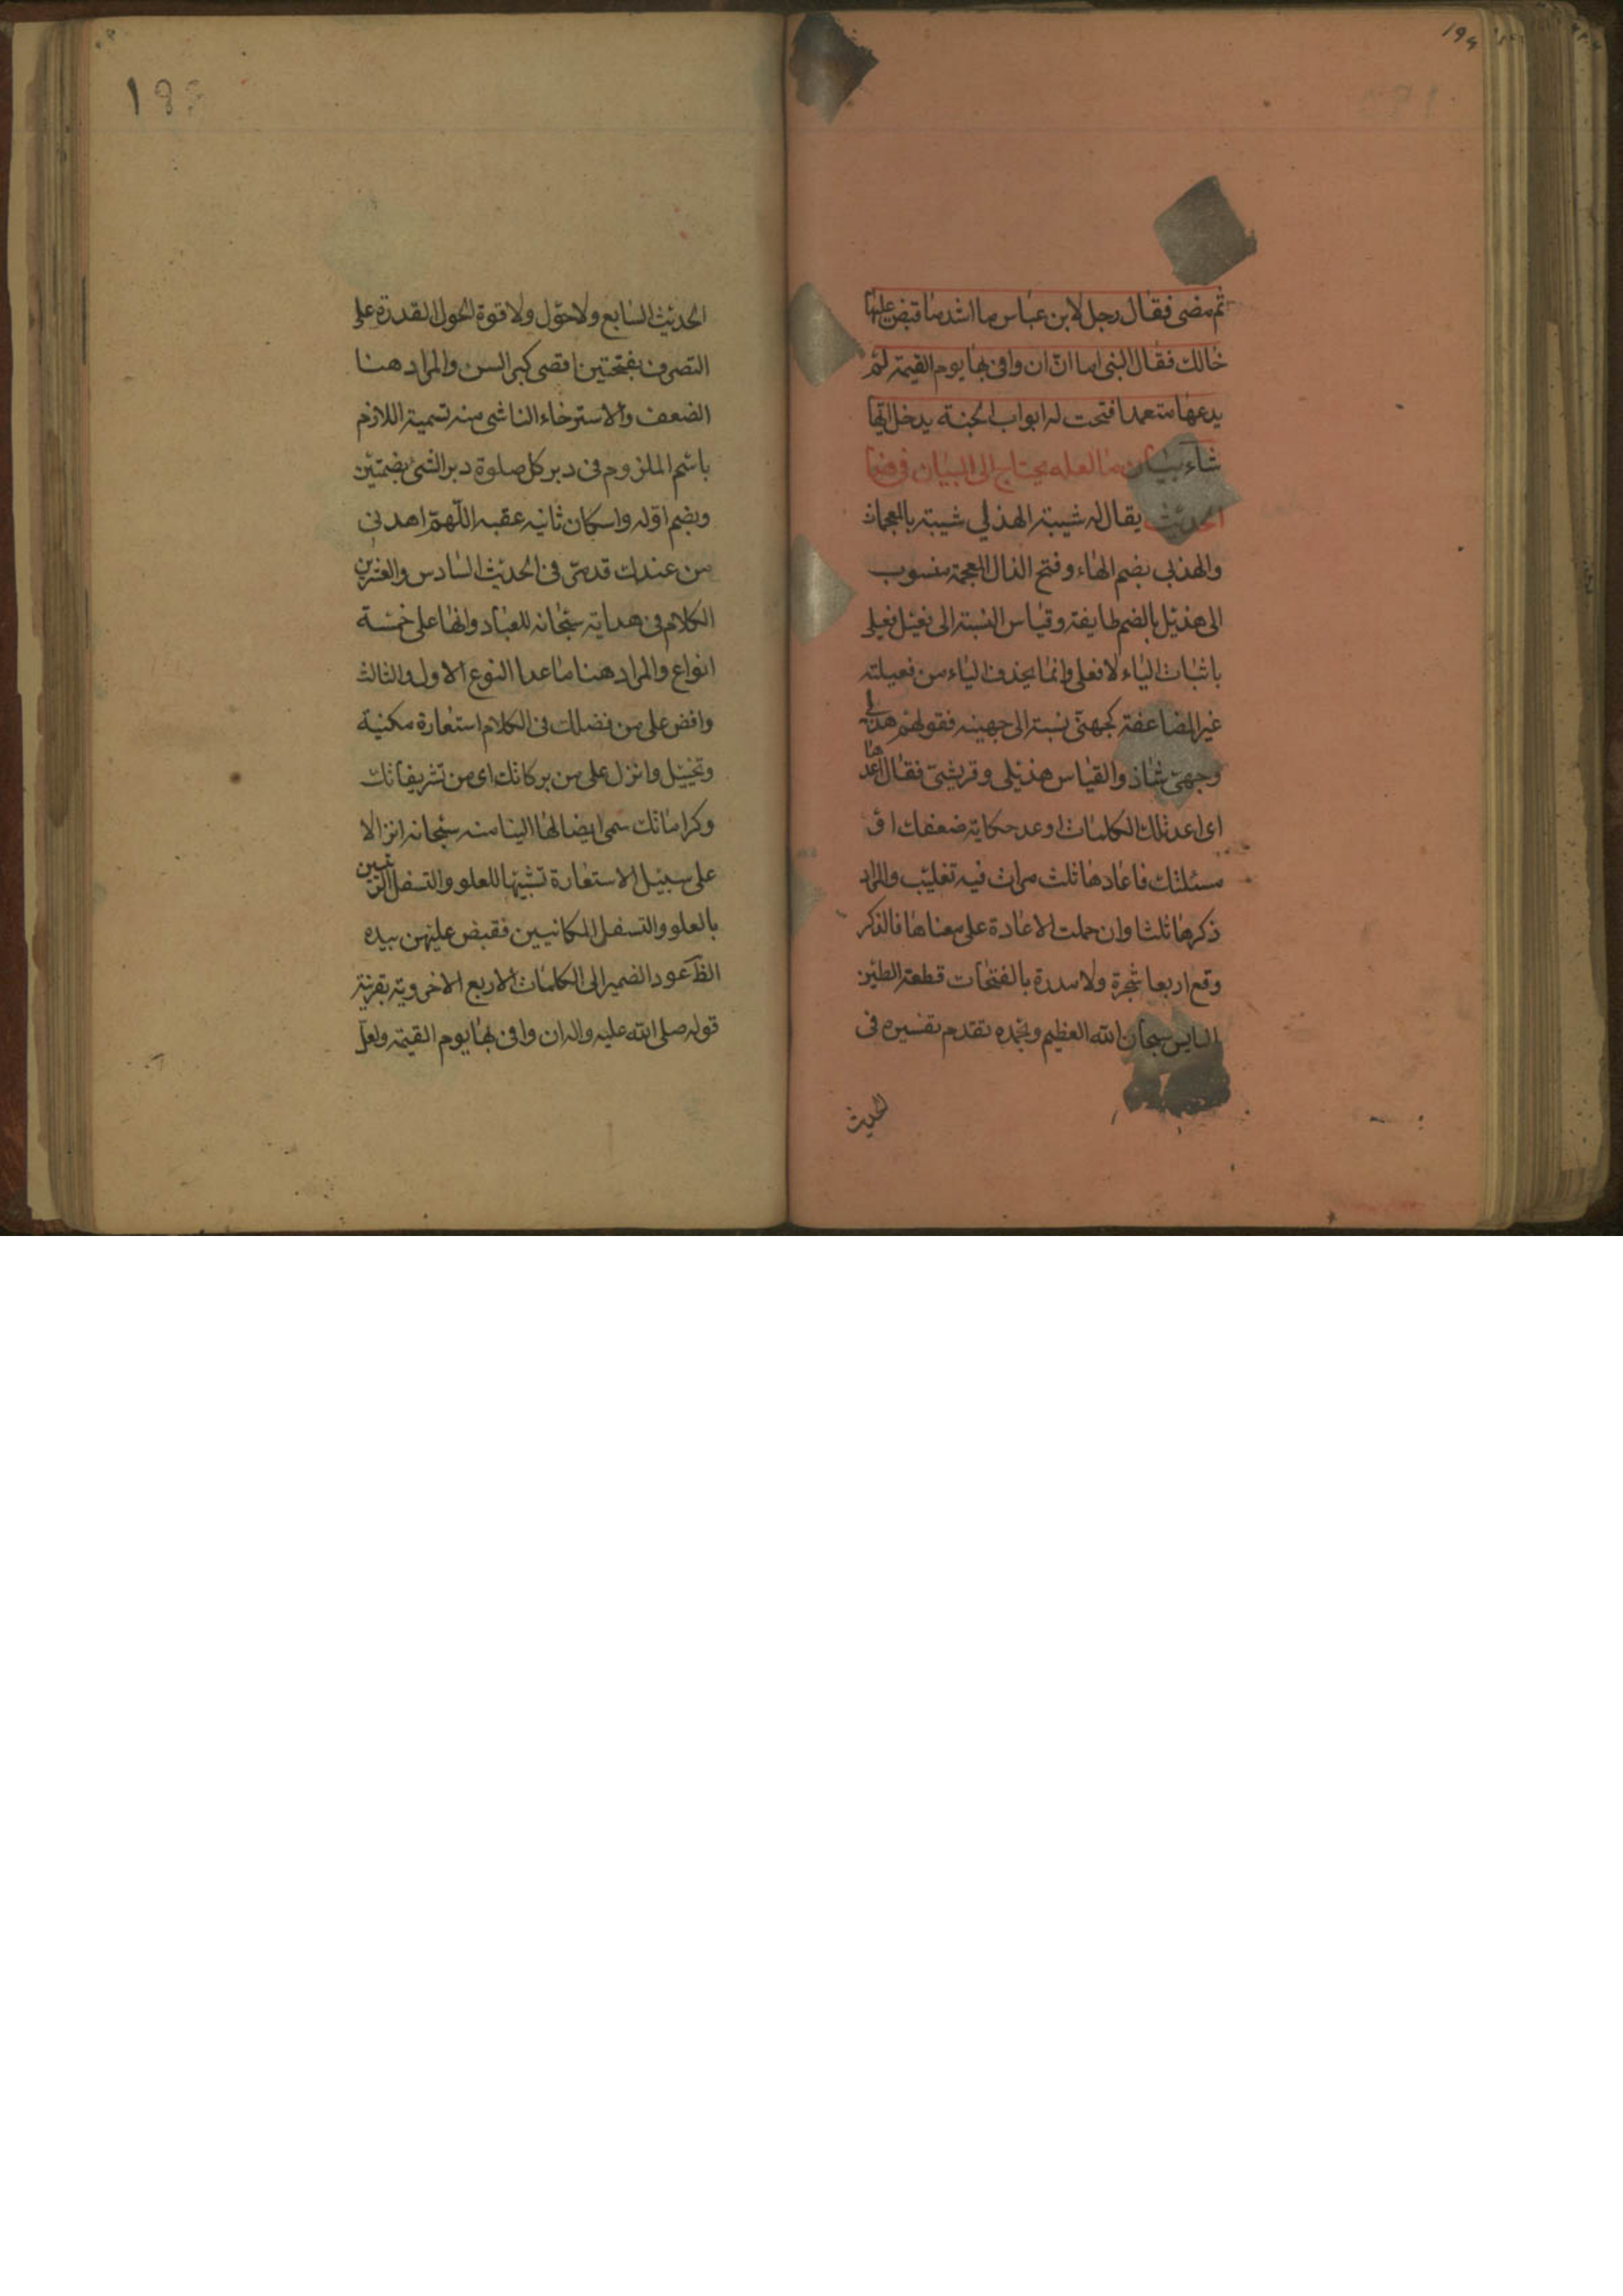 ١٩٤
ثم مضى فقال رجل لابن عباس ما اشد ما قبض عليها
خالك فقال النبى اما انّ ان وافى بها يوم القيمة لم
يدعها متعمدا فتحت له ابواب الجنة يدخل ايها
شاء بيان ما لعله يحتاج الى البيان فى هذا
الحديث يقال له شيبة الهذلي شيبة بالمعجمات
والهذلي بضم الهاء وفتح الذال المعجمة منسوب
الى هذيل بالضم طايفة وقياس النسبة الى فعيل فعيلي
باثبات الياء لا فعلي وانما يحذف الياء من فعيلة
غير المضاعفة كجهنىّ نسبة الى جهينه فقولهم هذلي
وجهنىّ شاذ والقياس هذيلي وقريشىّ فقال اعدها
اى اعد تلك الكلمات او عد حكاية ضعفك اى
مسئلتك فاعادها ثلث مرات فيه تغليب والمراد
ذكرها ثلثا وان حملت الاعادة على معناها فالذكر
وقع اربعا شجرة ولا مدرة بالفتحات قطعة الطين
اليابس سبحان الله العظيم وبحمده تقدم تفسيره فى
الحديث
الحديث السابع ولا حول ولا قوة الحول القدرة على
التصرف بفتحتين اقصى كبر السن والمراد هنا
الضعف والاسترخاء الناشى منه تسمية اللازم
باسم الملزوم فى دبر كل صلوة دبر الشئ بضمتين
وبضم اوله واسكان ثانيه عقبه اللّهمّ اهدنى
من عندك قد مرّ فى الحديث السادس والعشرين
الكلام فى هدايته سبحانه للعباد وانها على خمسة
انواع والمراد هنا ما عدا النوع الاول والثالث
وافض على من فضلك فى الكلام استعارة مكنية
وتخييل وانزل على من بركاتك اى من تشريفاتك
وكراماتك سمى ايصالها الينا منه سبحانه انزالا
على سبيل الاستعارة تشبيها للعلو والتسفل الرتبيين
بالعلو والتسفل المكانيين فقبض عليهن بيده
الظّ عود الضمير الى الكلمات الاربع الاخروية بقرينة
قوله صلى الله عليه واله ان وافى بها يوم القيمة ولعلّ